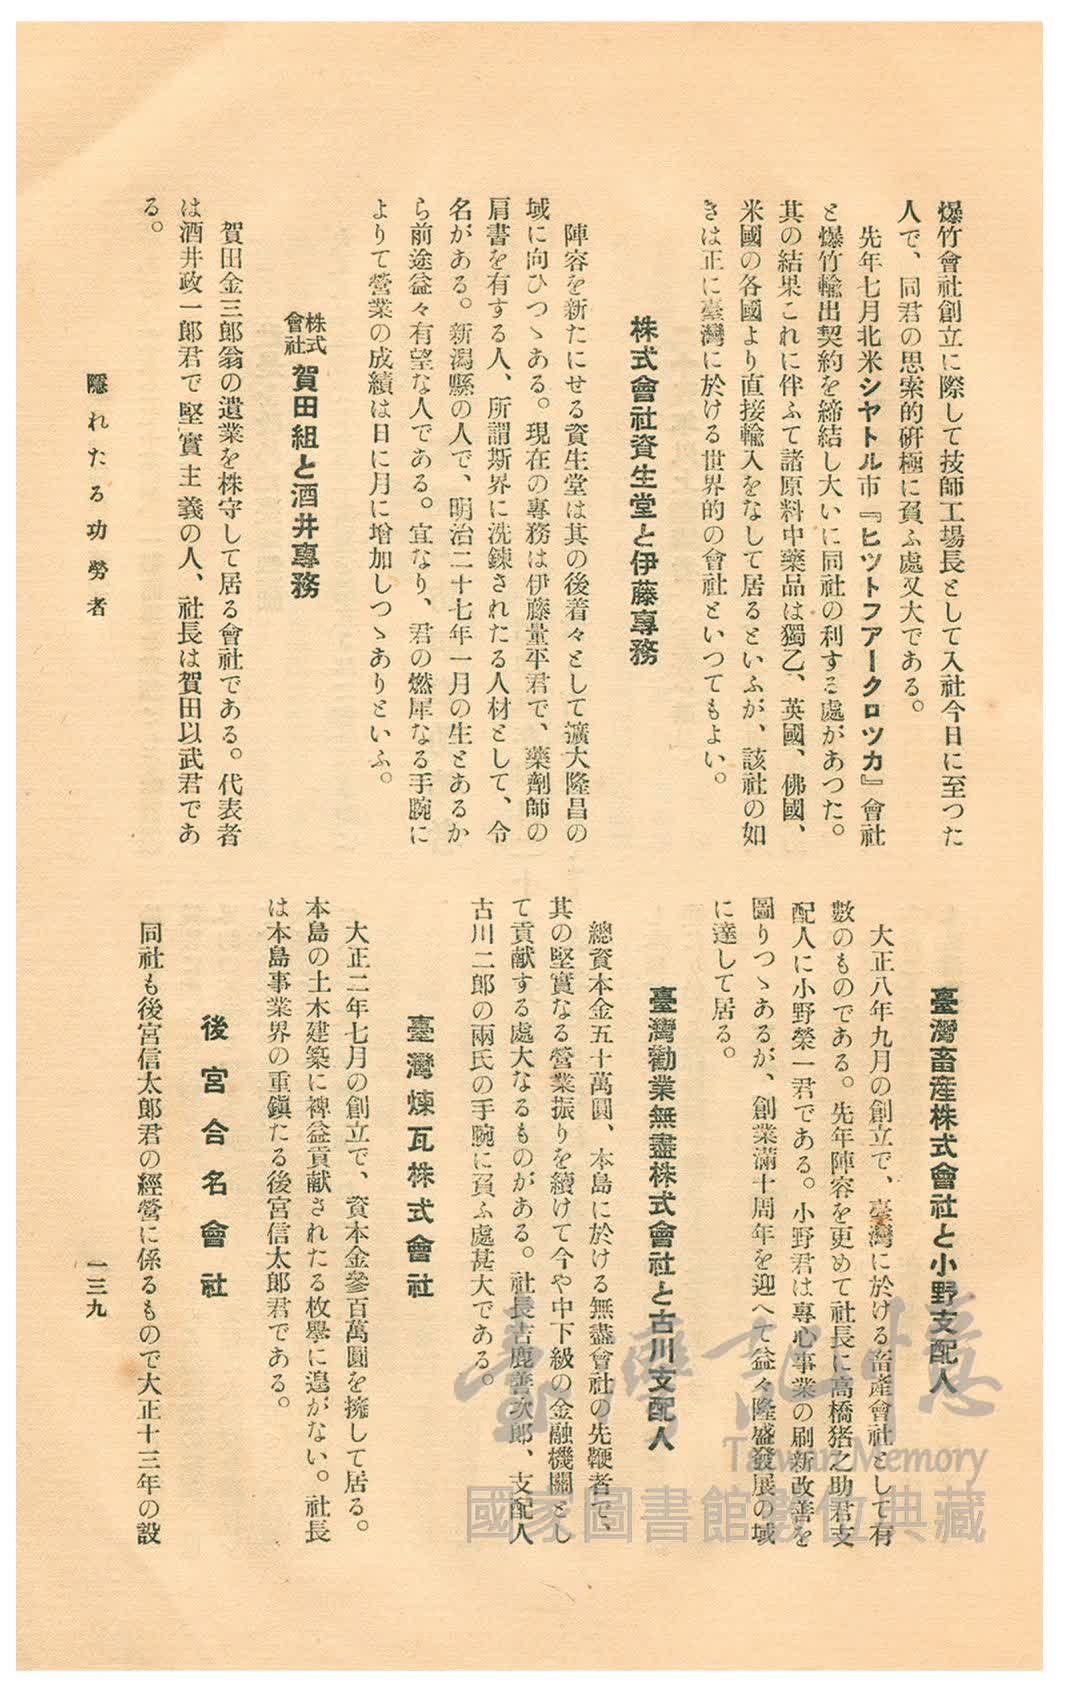 爆竹會社創立に際して技師工場長として入社今日に至つた
人で、同君の思索的研極に負ふ處又大である。
先年七月北米シヤトル市『ヒツトフアークロツカ』會社
と爆竹輸出契約を締結し大いに同社の利する處があつた。
其の結果これに伴ふて諸原料中藥品は獨乙、英國、佛國、
米國の各國より直接輸入をなして居るといふが、該社の如
きは正に臺灣に於ける世界的の會社といつてもよい。
株式會社資生堂と伊藤專務
陣容を新たにせる資生堂は其の後着々として擴大隆昌の
域に向ひつゝある。現在の專務は伊藤量平君で、藥劑師の
肩書を有する人、所謂斯界に洗鍊されたる人材として、令
名がある。新潟縣の人で、明治二十七年一月の生とあるか
ら前途益々有望な人である。宜なり、君の燃犀なる手腕に
よりて營業の成績は日に月に增加しつゝありといふ。
株式會社賀田組と酒井專務
賀田金三郎翁の遺業を株守して居る會社である。代表者
は酒井政一郎君で堅實主義の人、社長は賀田以武君であ
る。
臺灣畜産株式會社と小野支配人
大正八年九月の創立で、臺灣に於ける畜産會社として有
數のものである。先年陣容を更めて社長に高橋猪之助君支
配人に小野榮一君である。小野君は專心事業の刷新改善を
圖りつゝあるが、創業滿十周年を迎へて益々隆盛發展の域
に達して居る。
臺灣勸業無盡株式會社と古川支配人
總資本金五十萬圓、本島に於ける無盡會社の先鞭者で、
其の堅實なる營業振りを續けて今や中下級の金融機關とし
て貢献する處大なるものがある。社長吉鹿善次郎、支配人
古川二郎の兩氏の手腕に負ふ處甚大である。
臺灣煉瓦株式會社
大正二年七月の創立で、資本金參百萬圓を擁して居る。
本島の土木建築に裨益貢献されたる枚擧に遑がない。社長
は本島事業界の重鎭たる後宮信太郎君である。
後宮合名會社
同社も後宮信太郎君の經營に係るもので大正十三年の設
隱れたる功勞者
一三九
臺灣記憶
Taiwan Memory
國家圖書館數位典藏